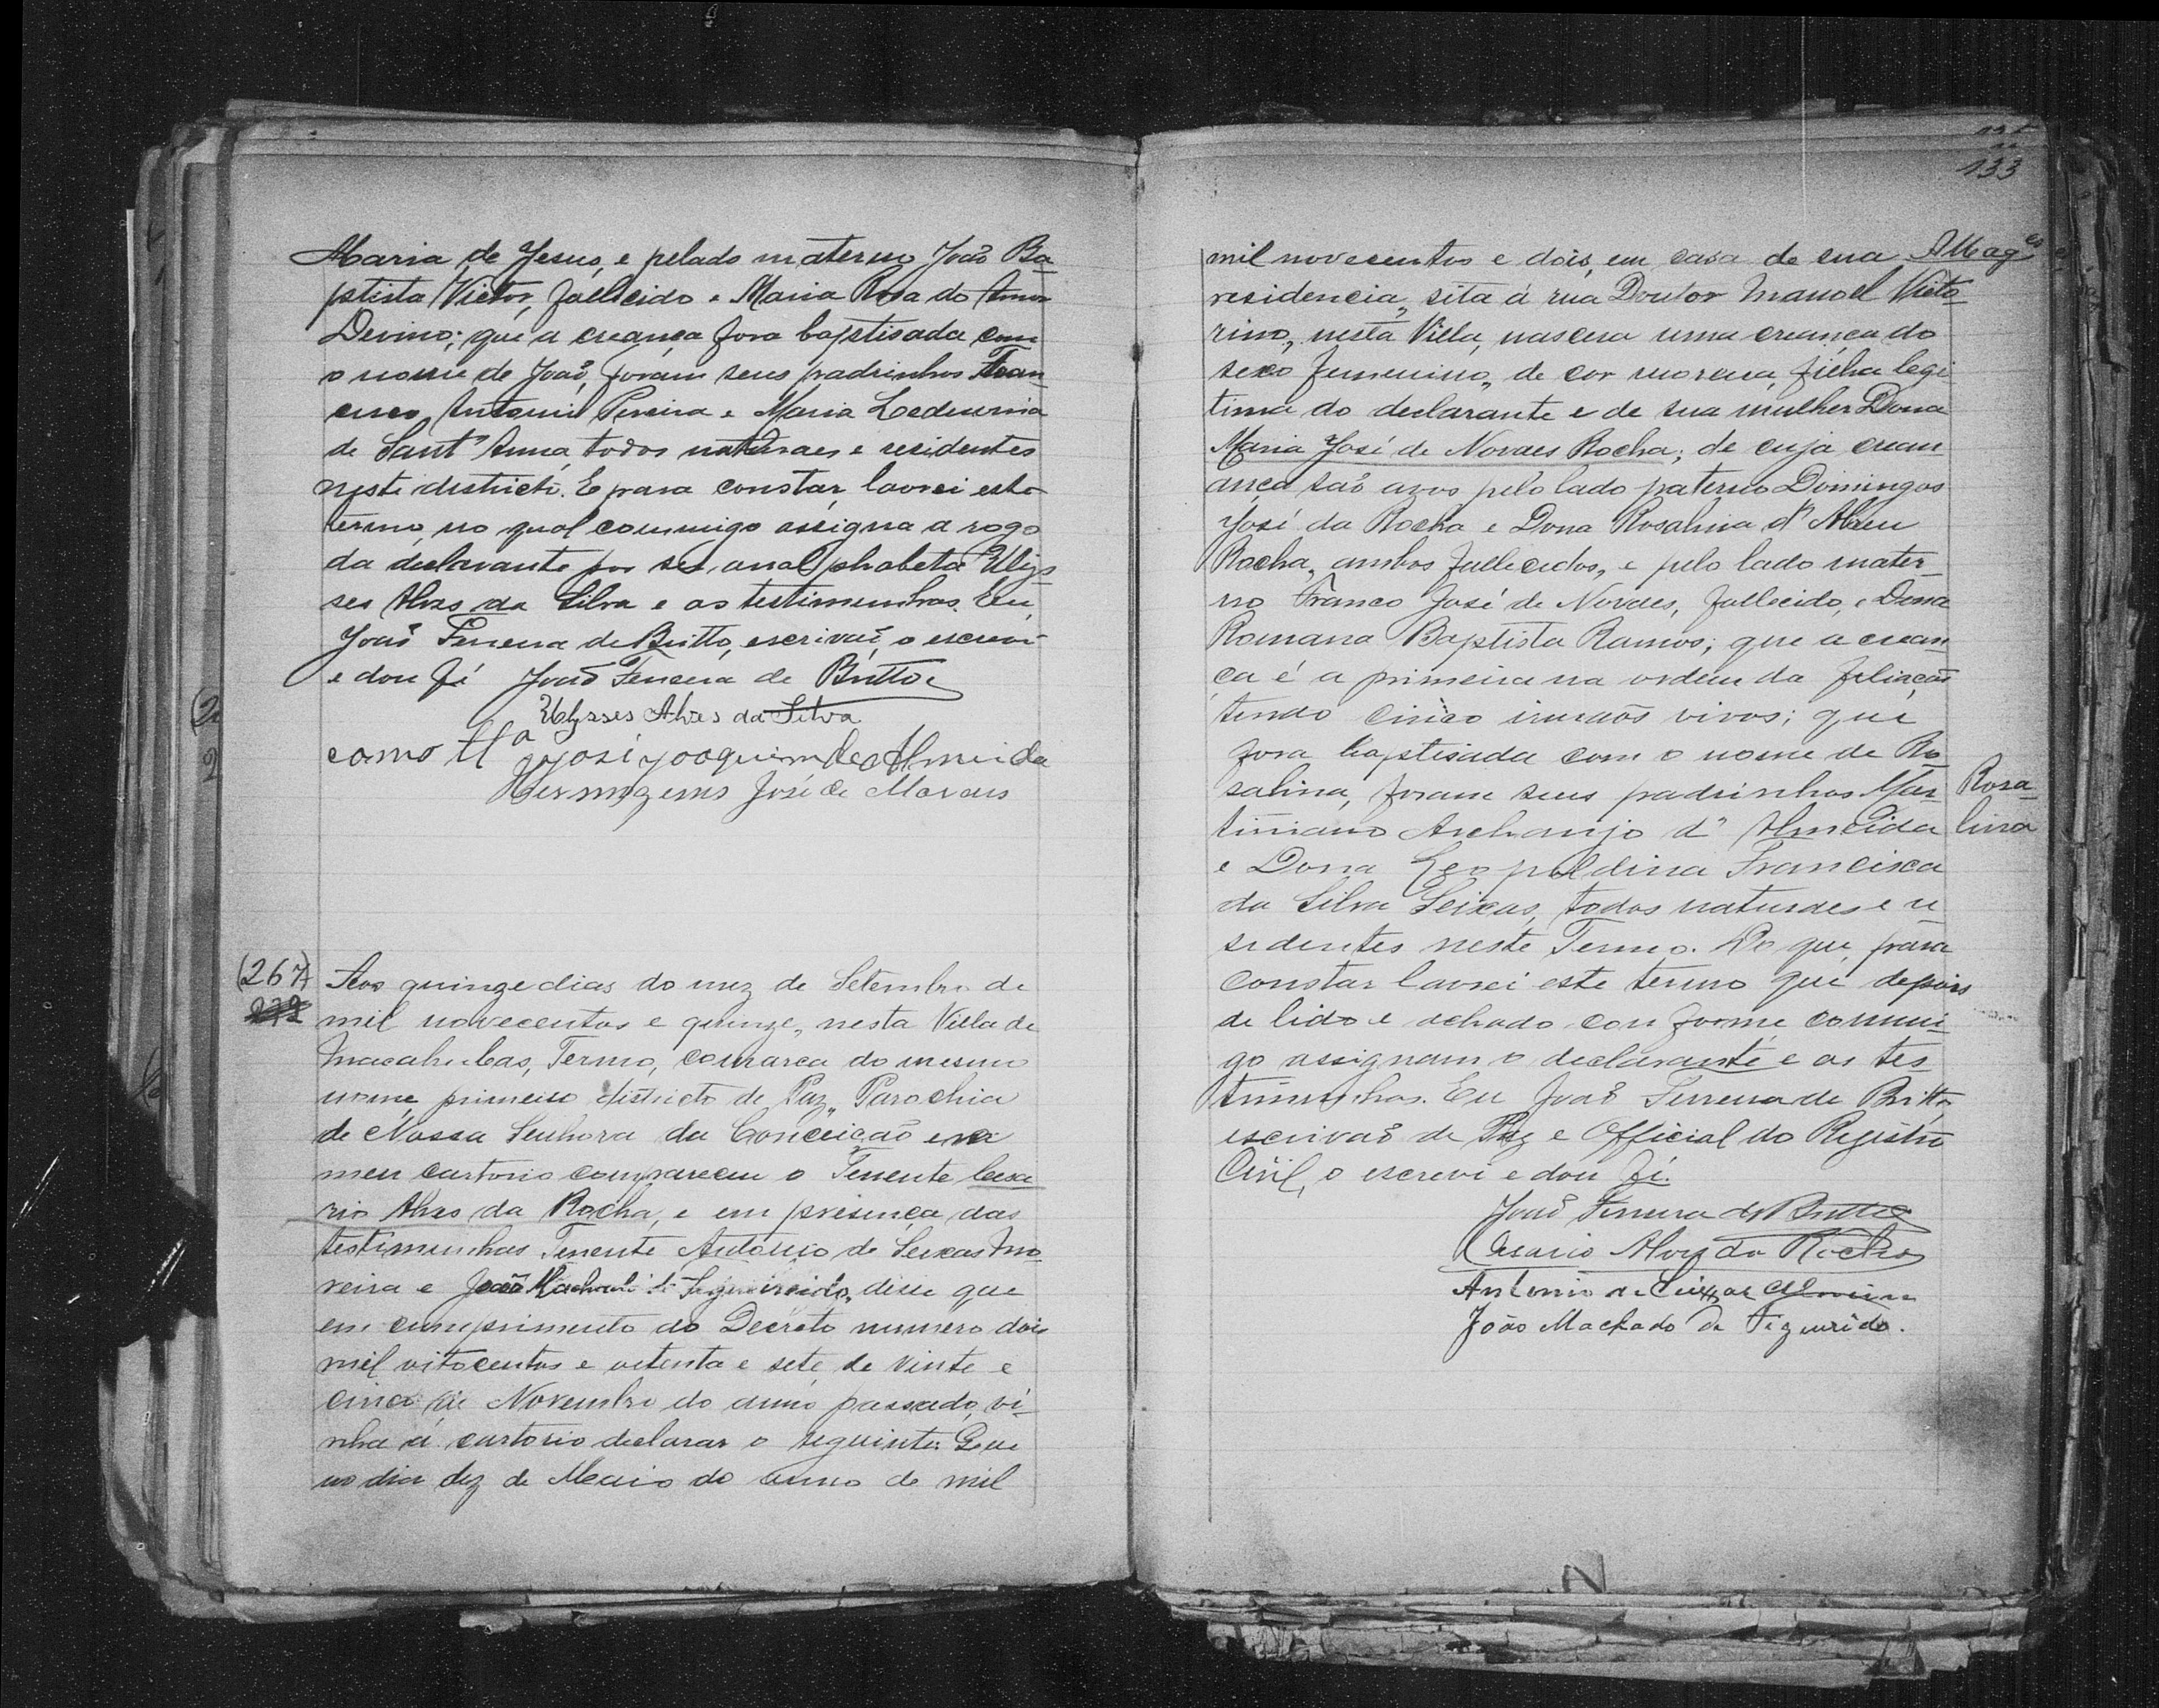 Maria de Jesus, e pelado materno João Ba-
ptista Victor, fallecido e Maria Rosa do Amor
Devino; que a creança fora baptisada com
o nome de João, foram seus padrinhos Fran-
cisco Antonio Pereira e Maria
de Sant'Anna, todos naturaes e residentes
neste districto. E para constar, lavrei este
termo, no qual commigo assigna a rogo
da declarante por ser analphabeta Ulys-
ses Alves da Silva e as testimunhas. Eu,
João Ferreira de Britto, escrivaõ, o escrevi
e dou fé João Ferreira de Britto
Ulysses Alves da Silva
como tta José Joaquim de Almeida
Hermogenes José de Moraes
(267)
Aos quinze dias do mez de Setembro de
mil novecentos e quinze, nesta Villa de
Macahubas, Termo, comarca do mesmo
nome, primeiro districto de Paz, Parochia
de Nossa Senhora da Conceição em
meu cartorio compareceu o Tenente Cesa
rio Alves da Rocha, e em presença das
testimunhas Tenente Antonio de Seixas Mo
reira e João Machado de Figueiredo, disse que
em cumprimento do Decreto numero dois
mil oitocentos e oitenta e sete, de vinte e
cinco de Novembro do anno passado, vi-
nha á cartorio declarar o seguinte: Que
no dia dez de Maio do anno de mil
133
mil novecentos e dois, em casa de sua
residencia, sita á rua Doutor Manoel Victo
rino, nesta Villa, nascera uma creança do
sexo femenino, de cor morena, filha legi
tima do declarante e de sua mulher Dona
Maria José de Novaes Rocha; de cuja crean
ança saõ avos pelo lado paterno Domingos
José da Rocha e Dona Rosalina d'Abreu
Rocha, ambos fallecidos, e pelo lado mater-
no Franco José de Novaes, fallecido, e Dona
Romana Baptista Ramos; que a crean
ça é a primeira na ordem da filiação
tendo cinco irmaõs vivos; que
fora baptisada com o nome de Ro
salina, foram seus padrinhos Mar-
Rosa-
lina
tiniano Archanjo d'Almeida
e Dona Leopoldina Francisca
da Silva Seixas, todos naturaes e re-
sidentes neste Termo. Do que, para
constar lavrei este termo que depois
de lido e achado conforme commi-
go assignam o declarante e as tes
timunhas. Eu João Ferreira de Britto,
escrivaõ de Paz e Official do Registro
Civil, o escrevi e dou fé.
João Ferreira de Britto
Cesario Alves da Rocha
Antonio de Seixas Moreira
João Machado de Figueirido.